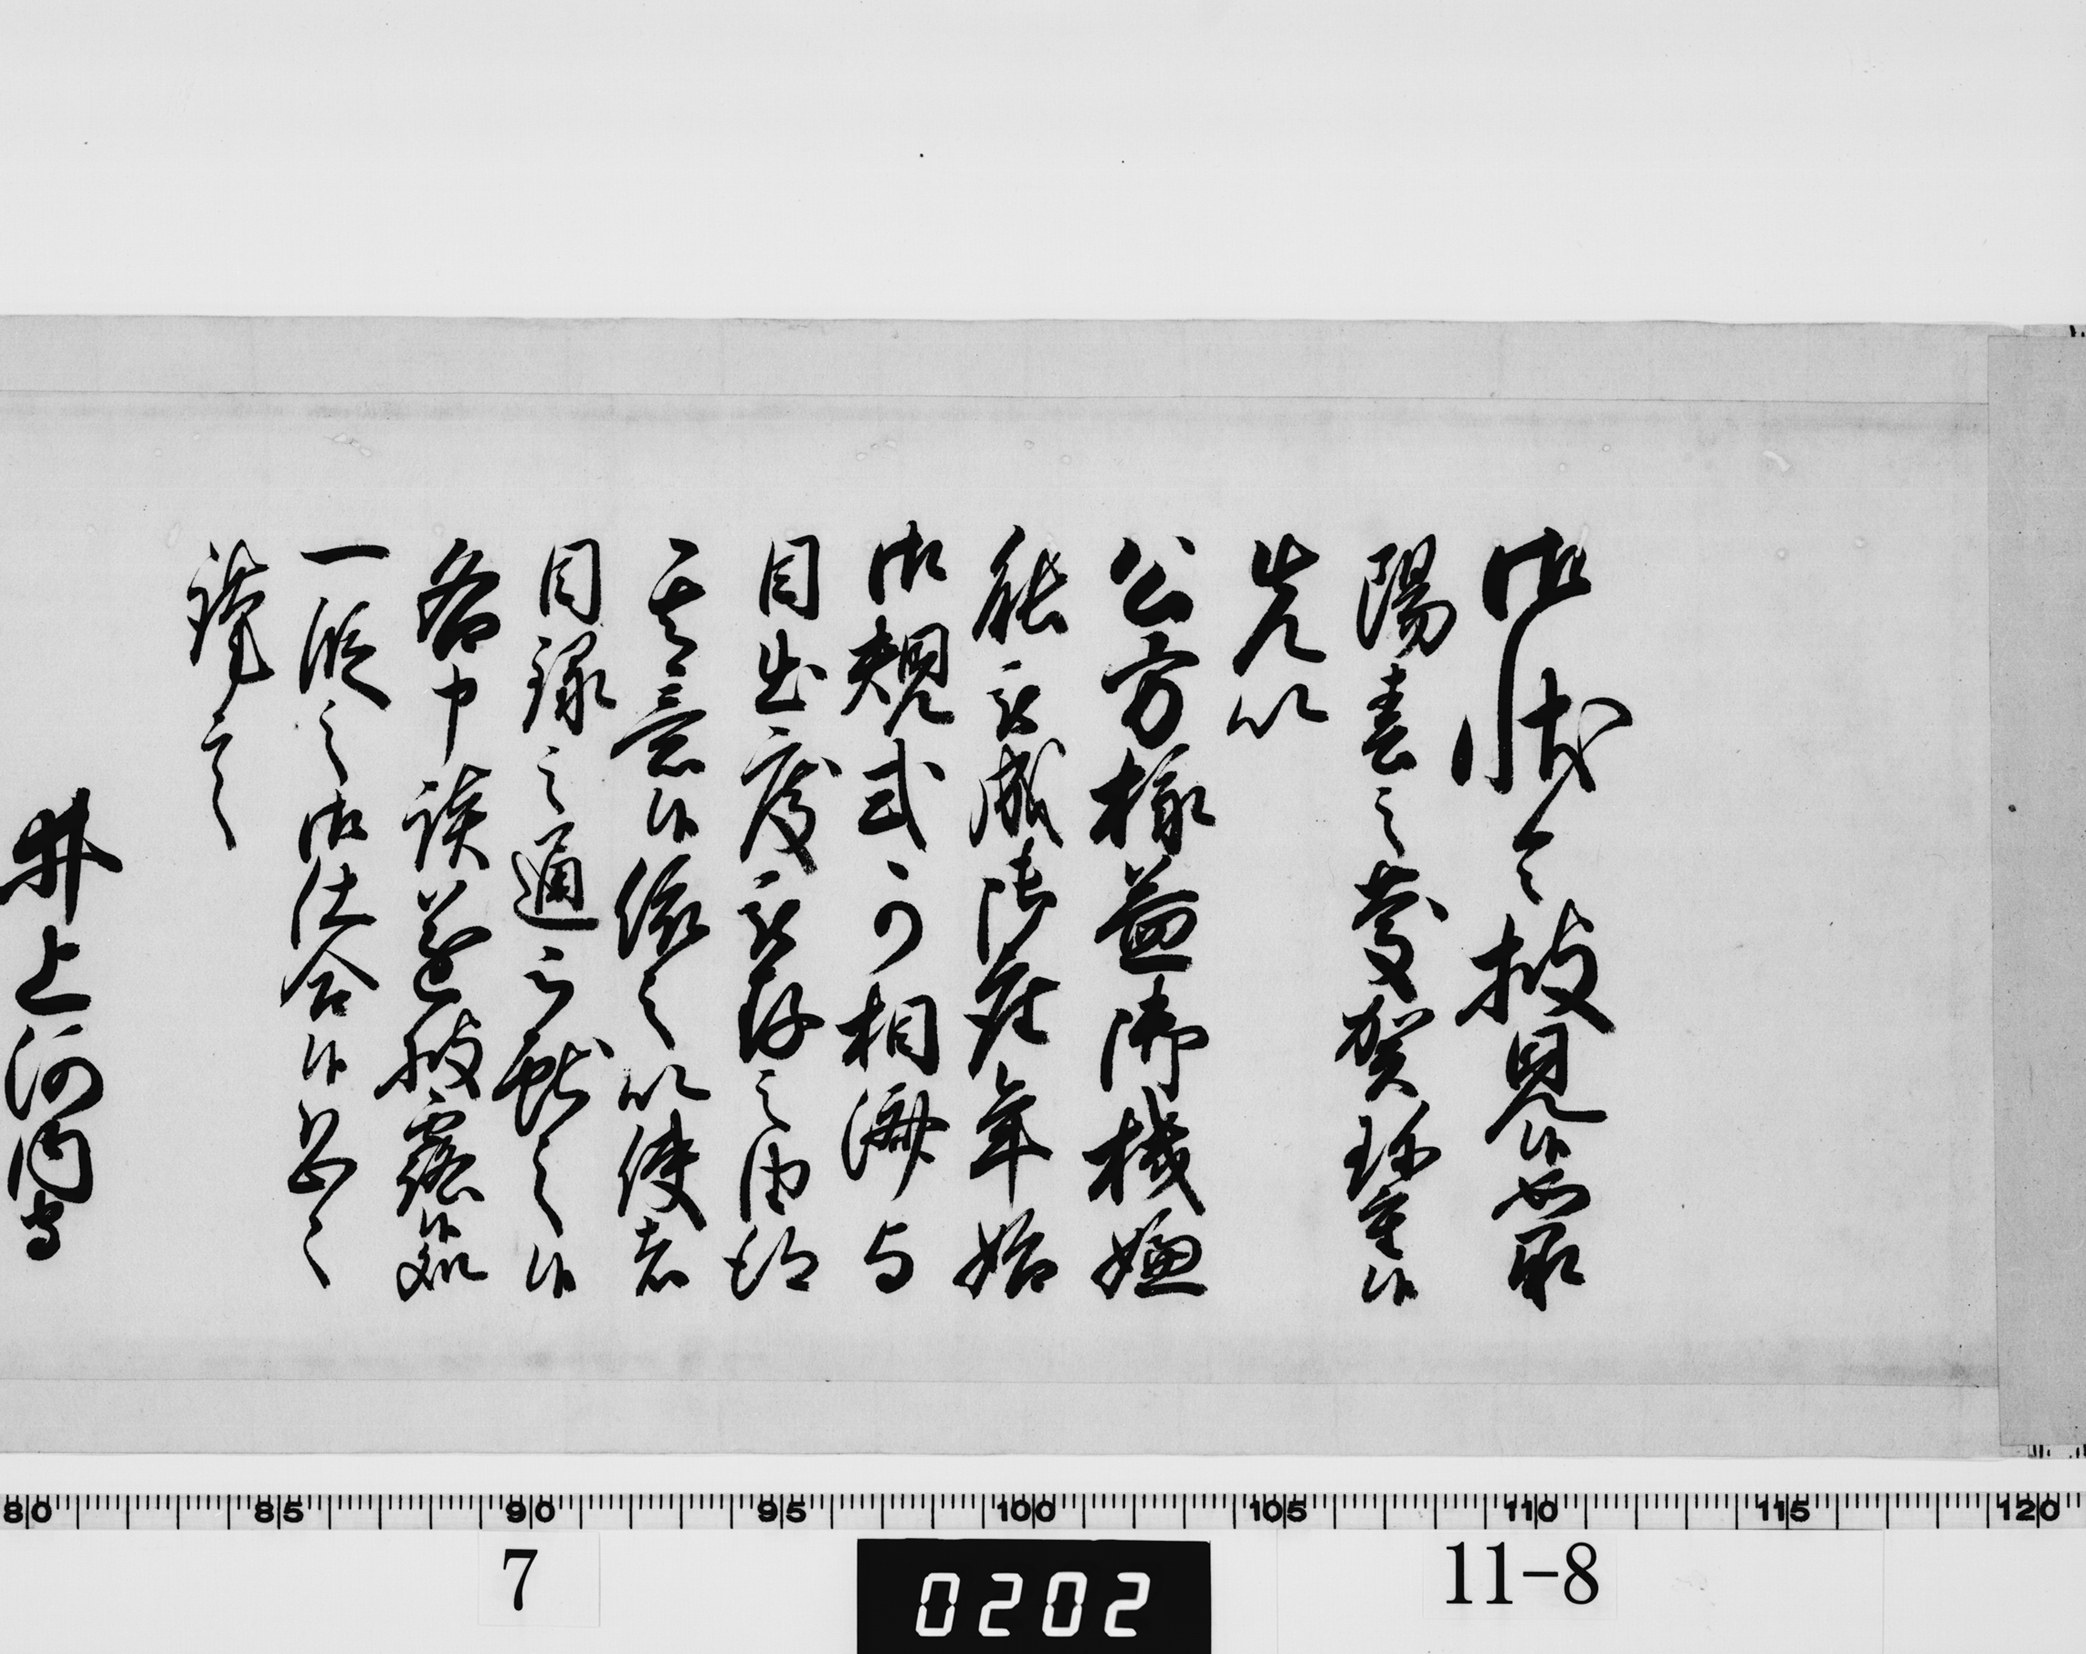 御状令披見候如来
陽春之慶賀珍重候
先以
公方様益御機嫌
能被成御座年始
御規式可相済与
目出度被存之由得
其意候依之以使者
目録之通被献之候
各申談遂披露候処
一段之御仕合候恐々
謹言
井上河内守
80 85 90 95 100 105 110 115 120
7
0202
11-8